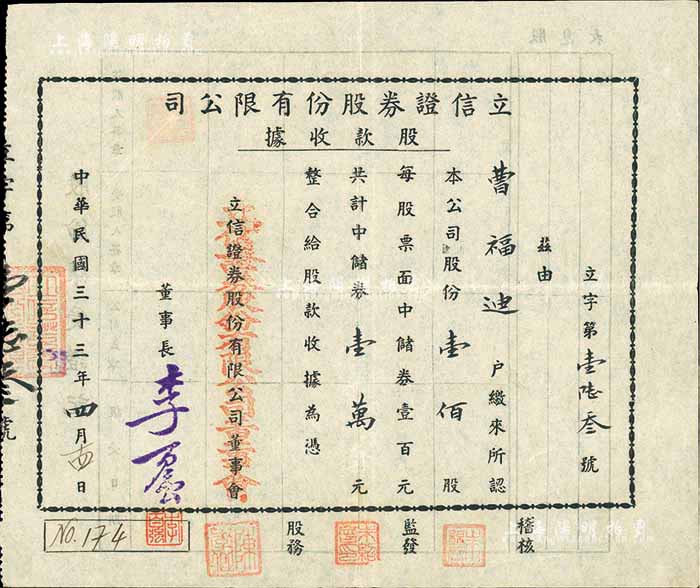 立信證券股份有限公司
股款收據
立字第壹陸叁號
茲由
曹福迪戶繳來所認
本公司股份壹佰股
每股票面中儲券壹百元
共計中儲券壹萬元
整合給股款收據為憑
立信證券股份有限公司董事會
董事長
中華民國三十三年四月十四日
稽核
監發
股務
No. 174
上海陽明拍賣